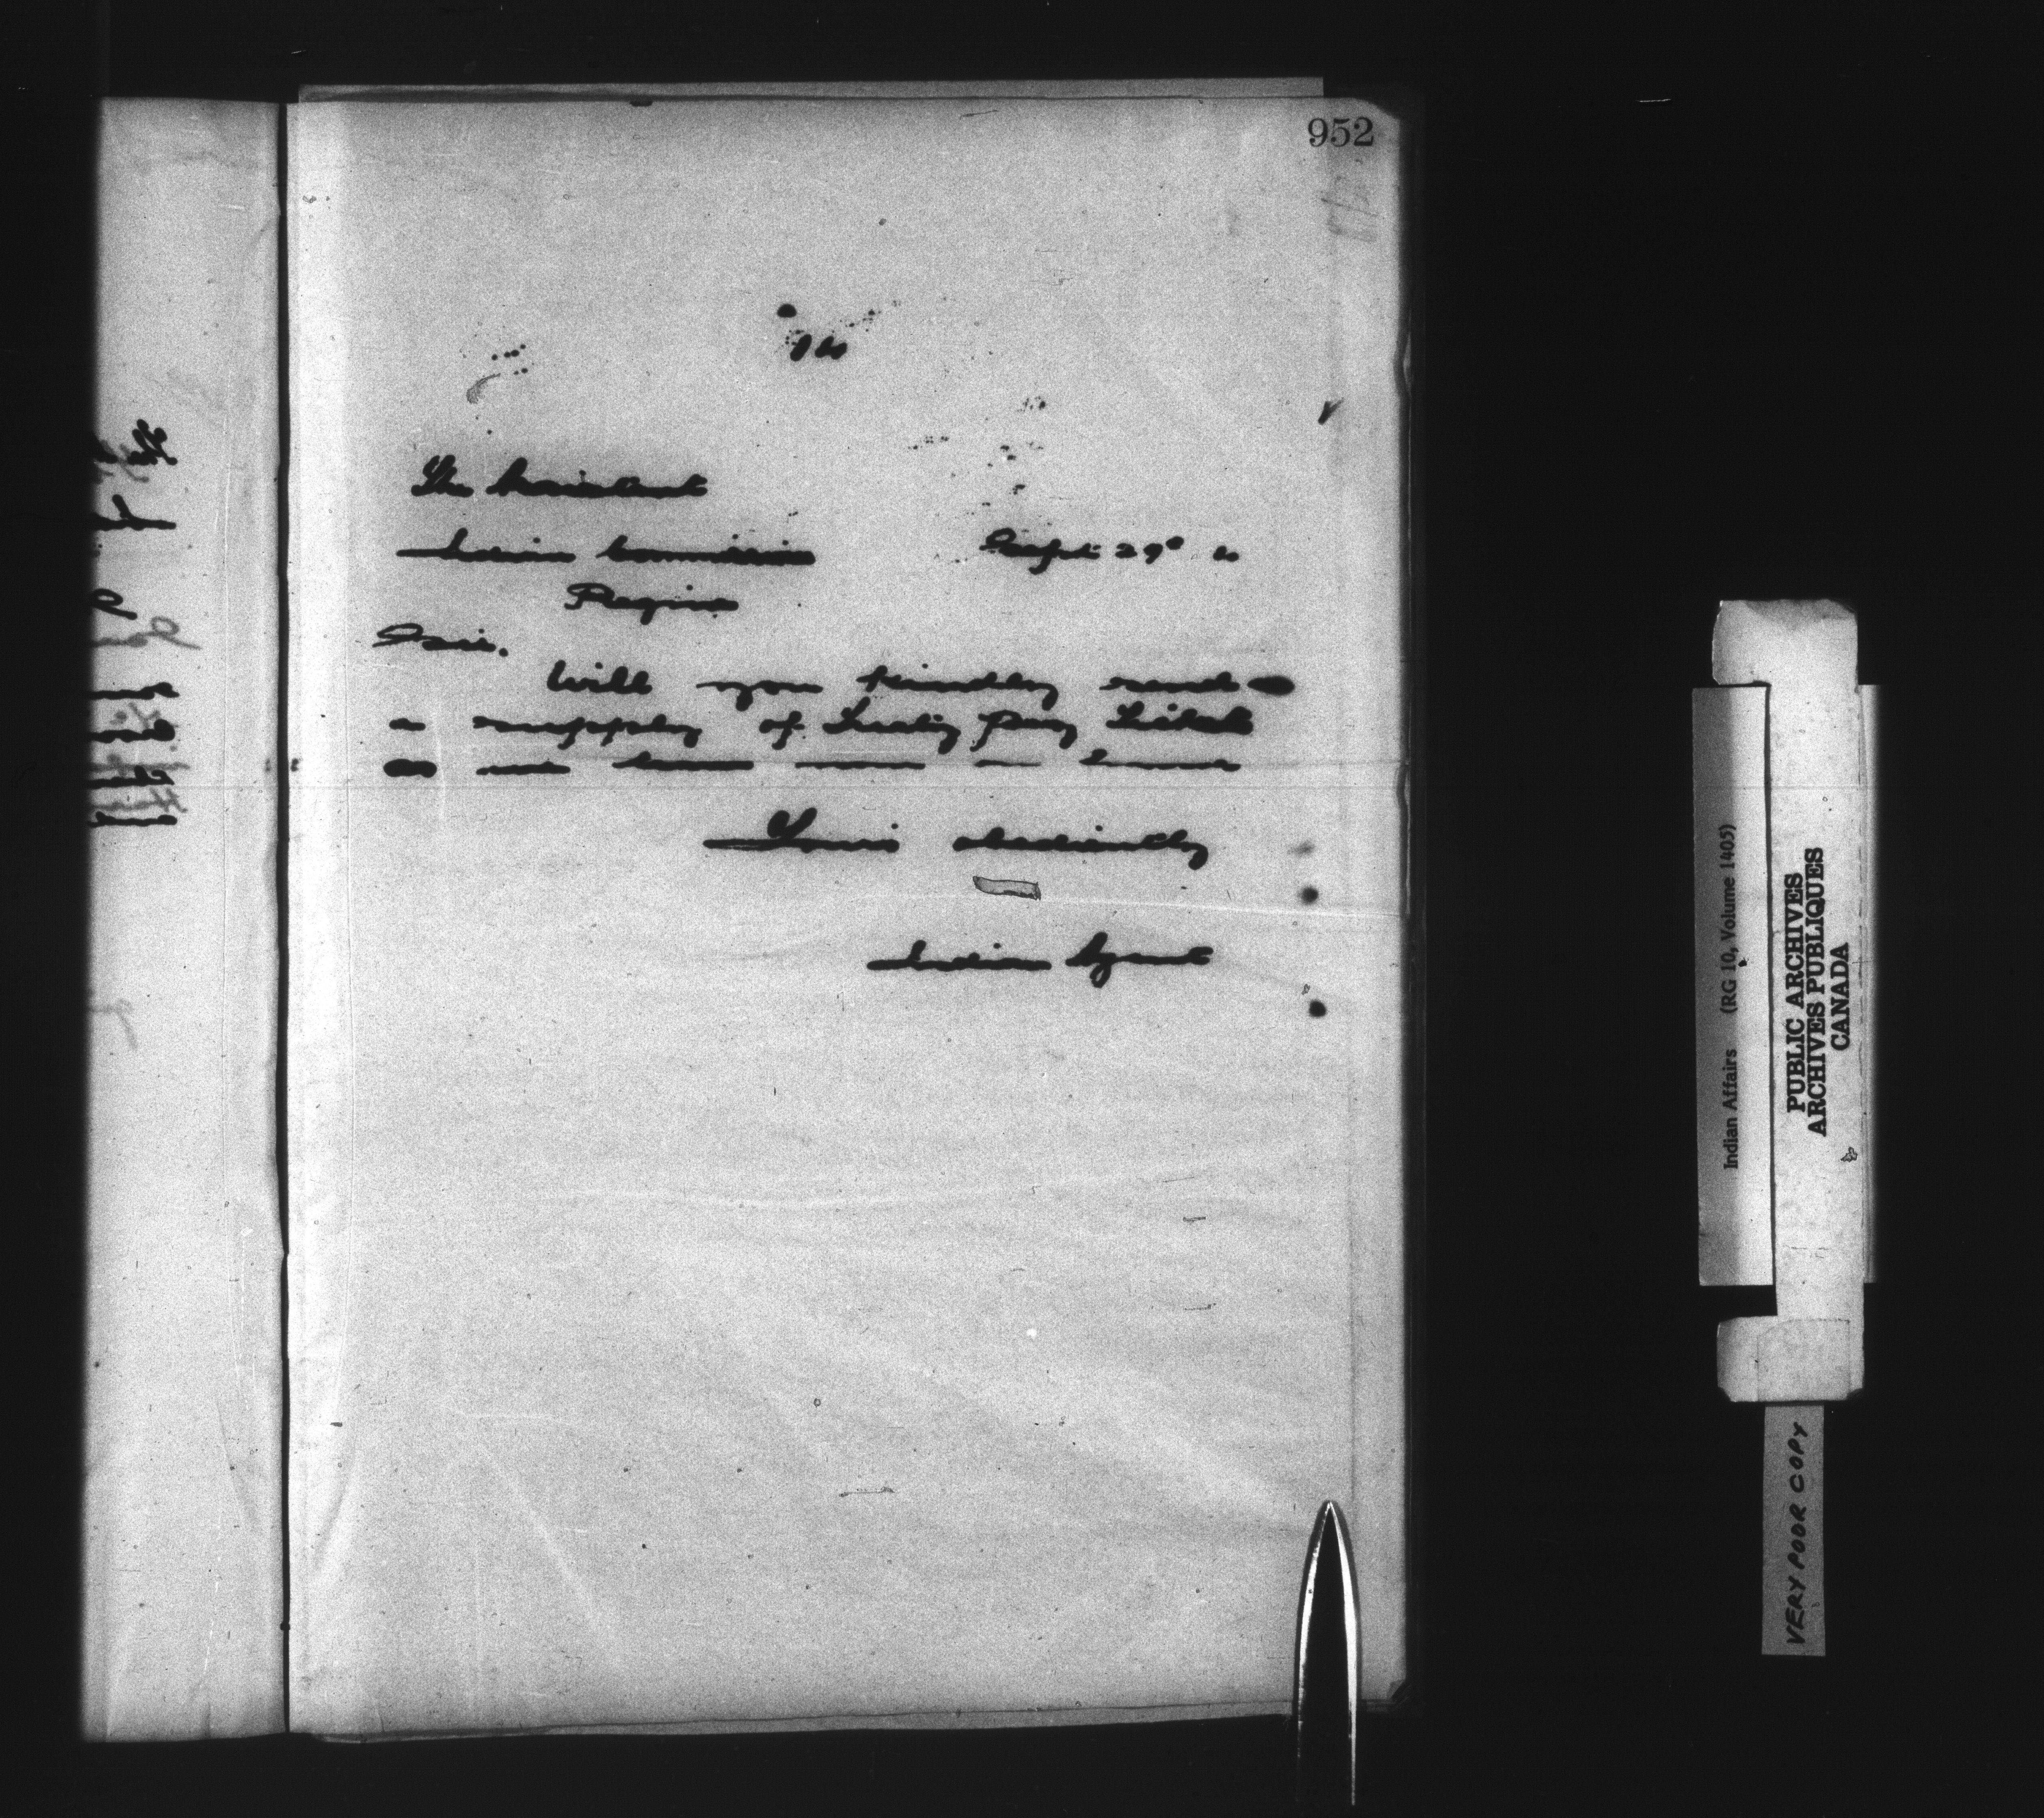 952
The Assistant
Indian Commissioner Sept 29
Regina
Sir.
Will you kindly send
a supply of Treaty pay Tickets
as we have none in
Yours obediently
Indian Agent
Indian Affairs (RG 10, Volume 1405)
PUBLIC ARCHIVES
ARCHIVES PUBLIQUES
CANADA
VERY POOR COPY